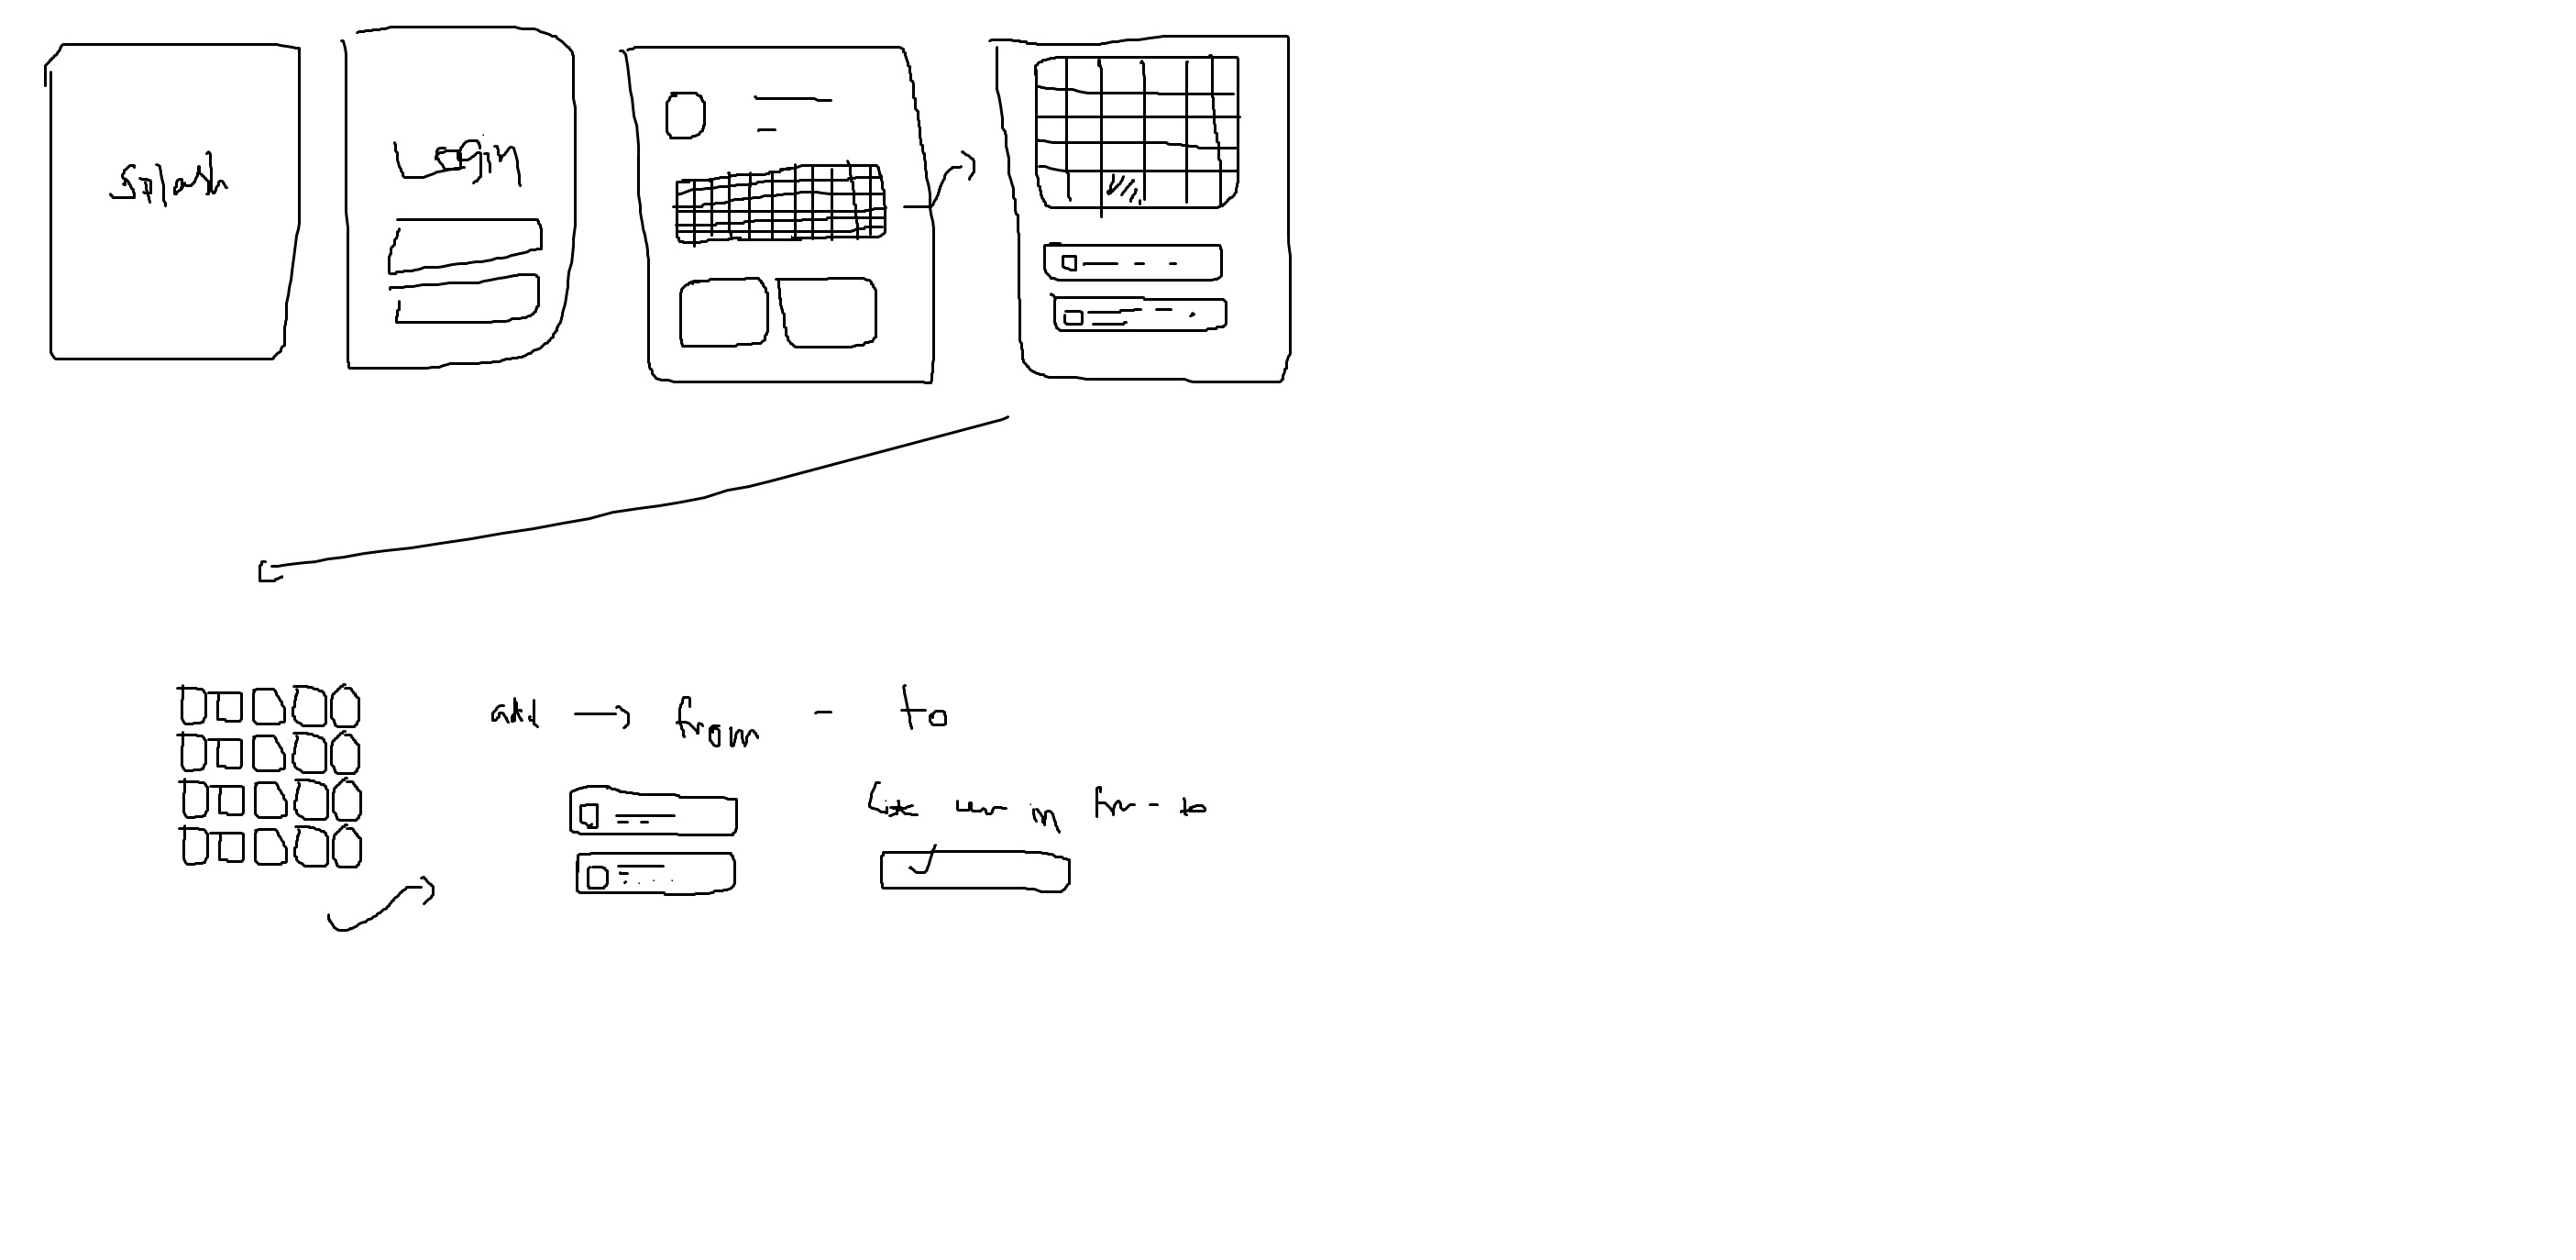 Splash
Login
add → from - to
List user in from - to